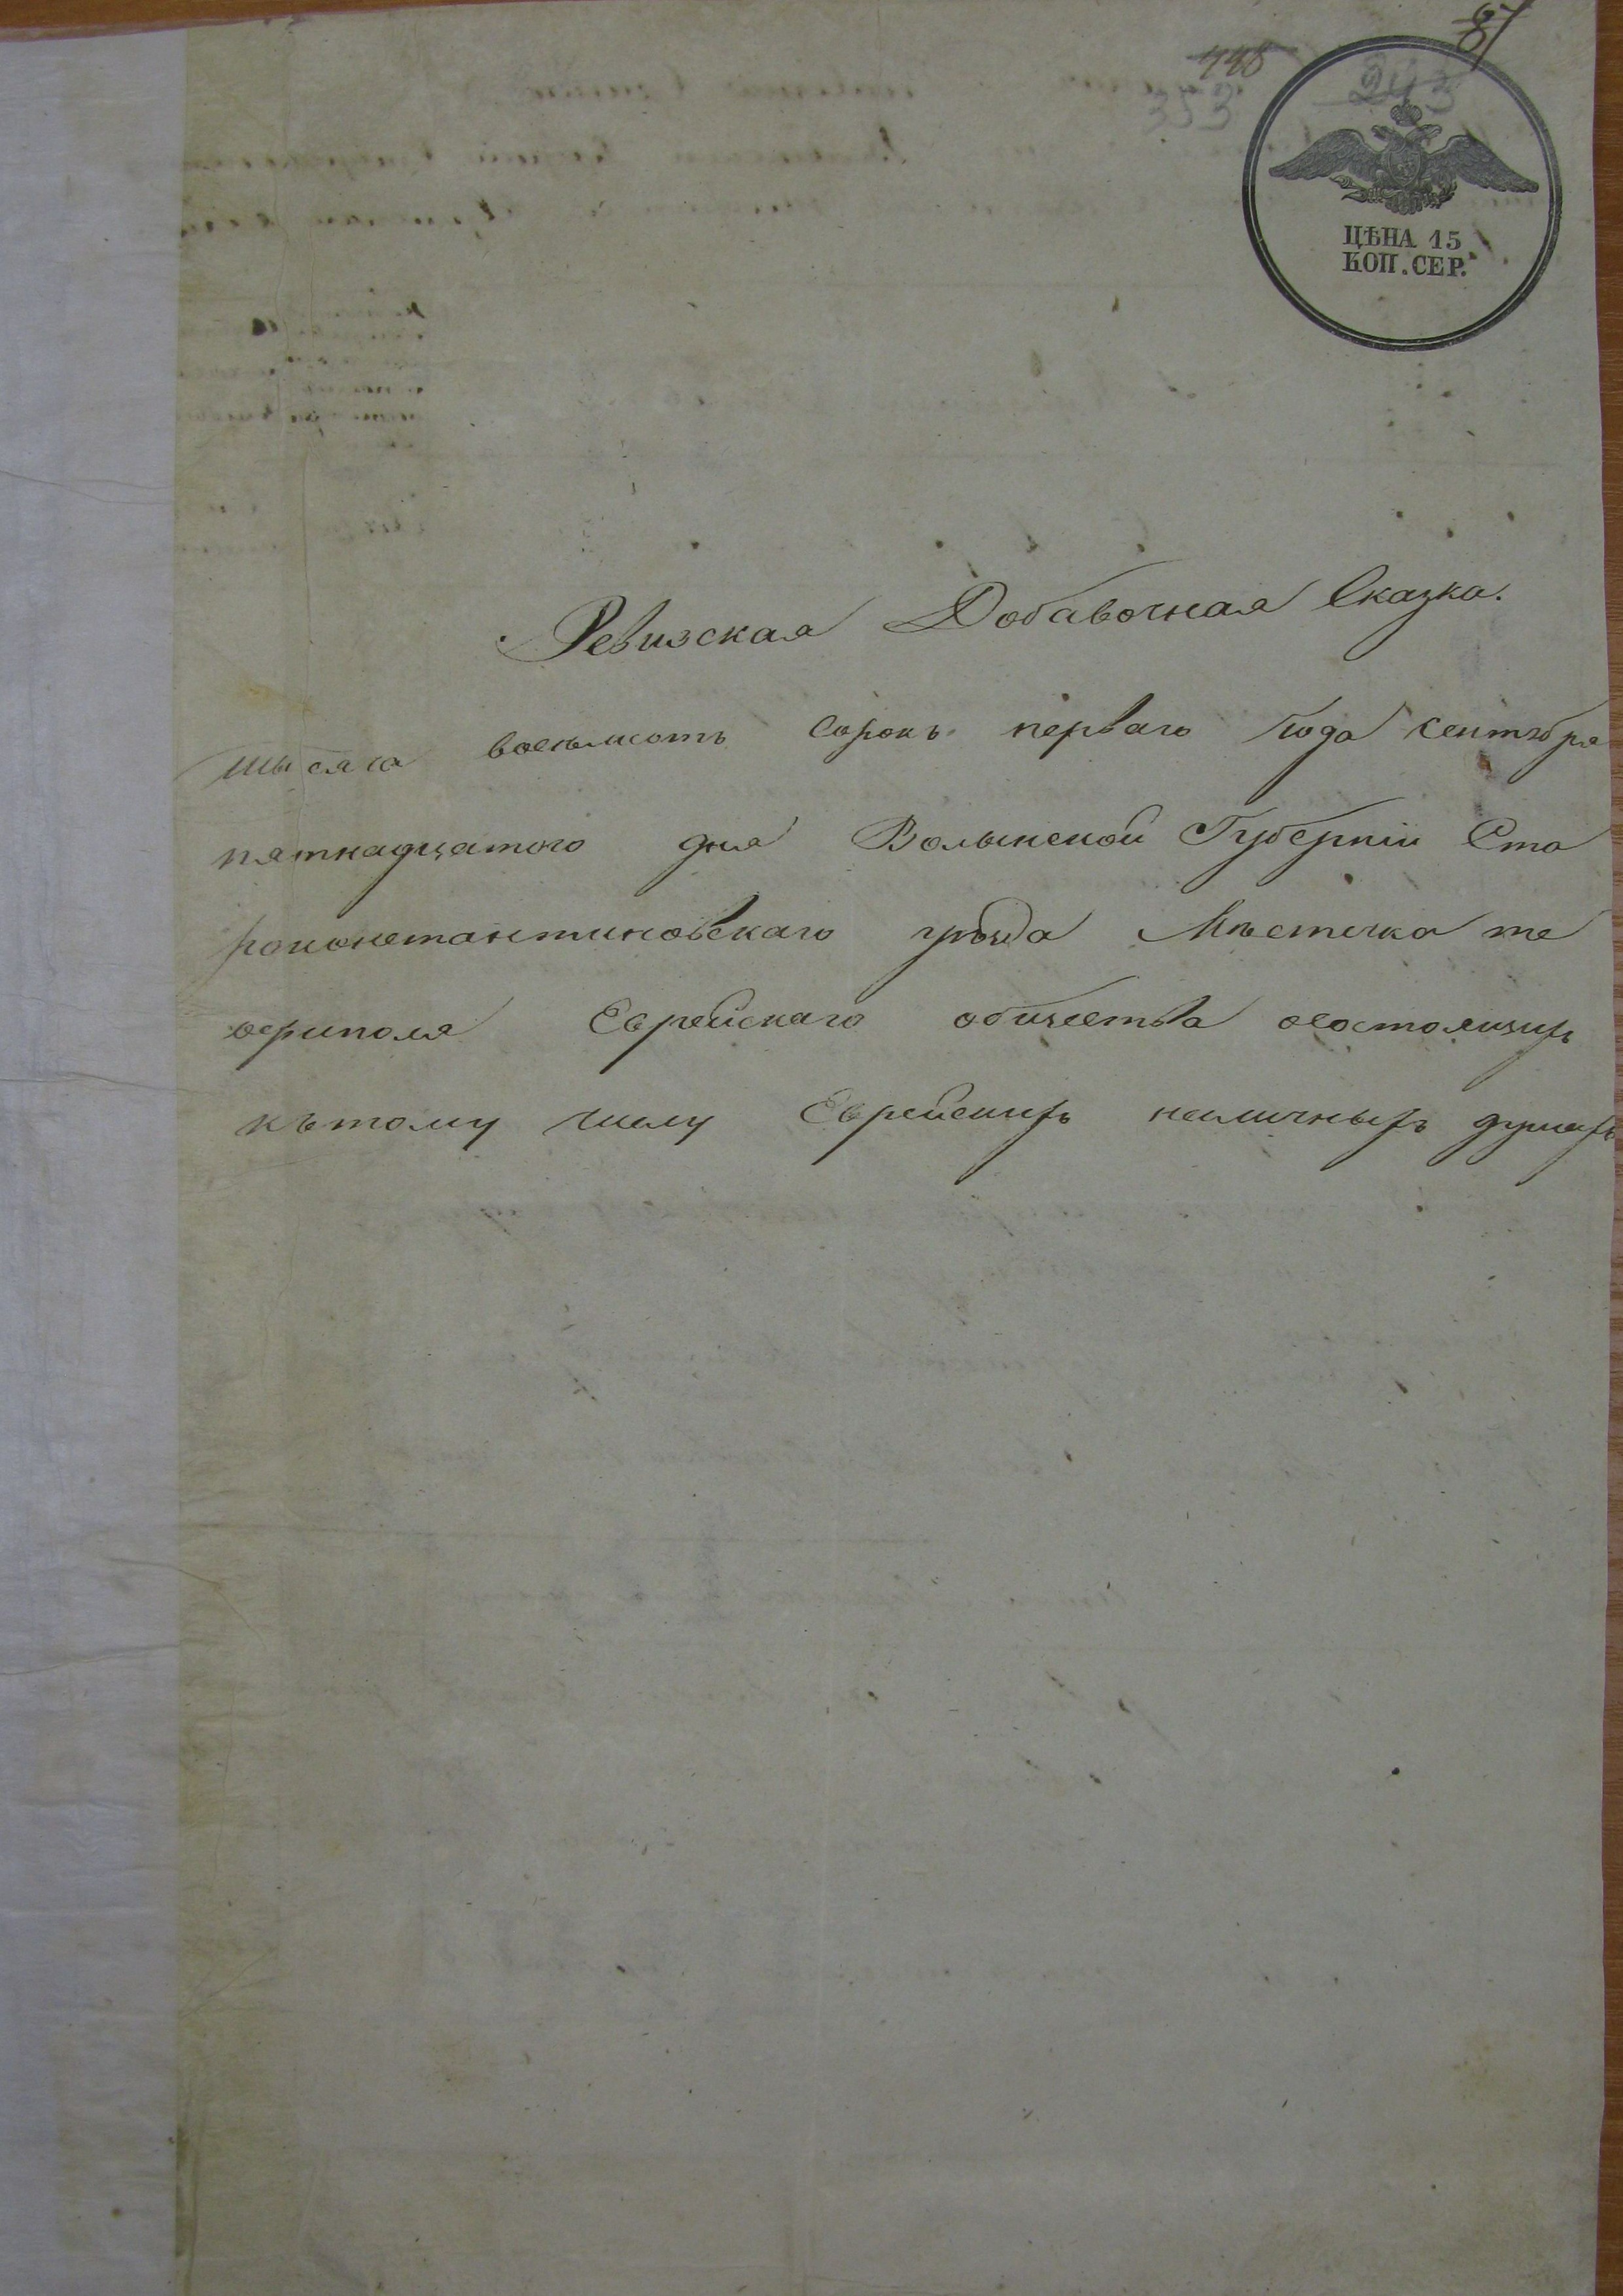 67
448
353
243
ЦѢНА 15
КОП. СЕР.
Ревизская Добавочная Сказка.
тысяча восемьсотъ сорокъ перваго года сентября
пятнадцатого дня Волынской Губерніи Ста
роконстантиновскаго уѣзда Мѣстечка те
офиполя Еврейскаго общества осостоящихъ
къ тому числу Еврейскихъ наличныхъ душахъ